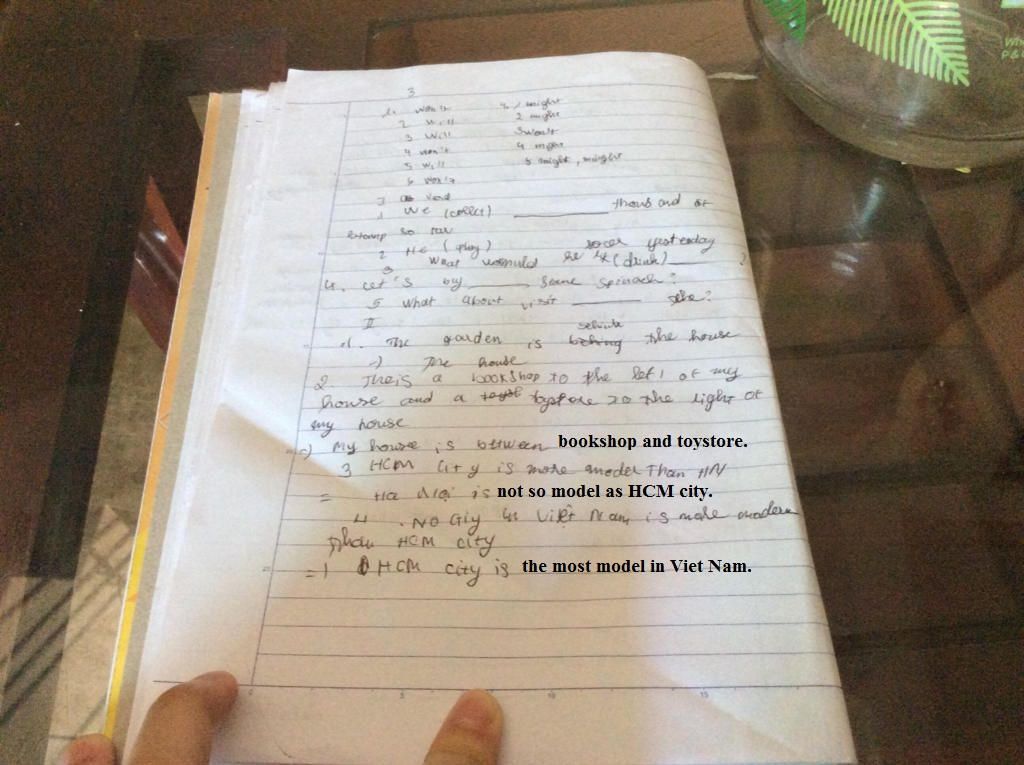 3
1. won't 1 might
2 will 2 might
3 will 3 won't
4 won't 4 might
5 will 5 might, might
6 won't
1 We (collect) ________ of
so far
2 He (play) yesterday
3 What he (drink) ____ ?
4. Let's by ____ some spinach?
5 What about visit ____ ?
II
1. The garden is behing the house
-) The house
2 Theis a bookshop to the left of my
house and a to the light of
my house
=) My house is between bookshop and toystore.
3 HCM City is more model Than HN
= Ha Nội is not so model as HCM city.
4. NO in Việt Nam is more modern
than HCM city
=) HCM city is the most model in Viet Nam.
5 10 15